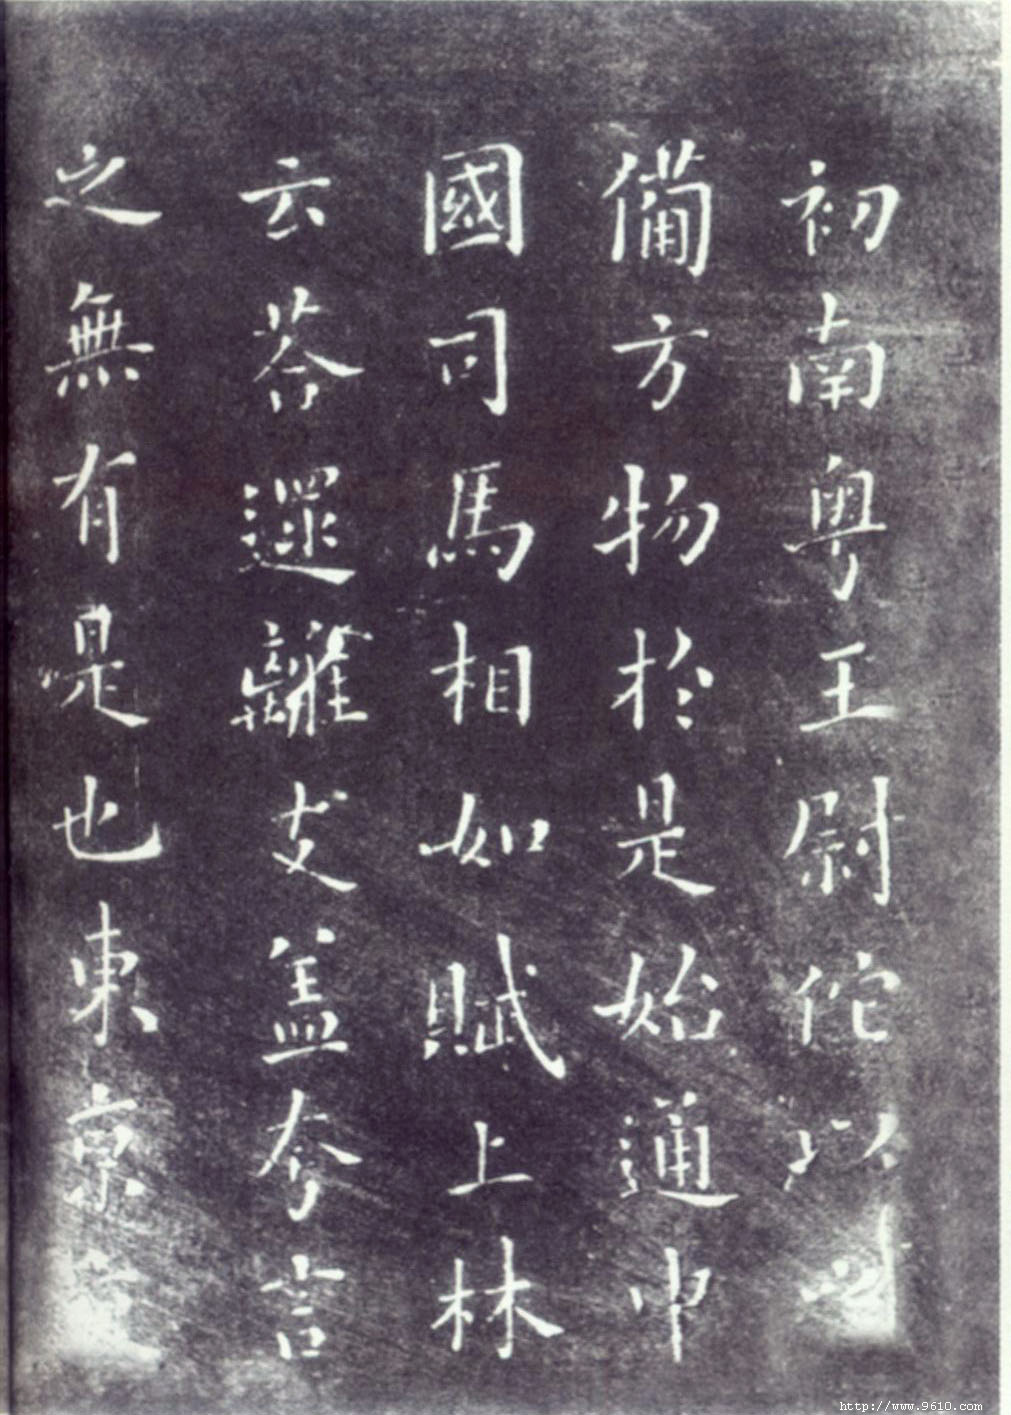 初南粵王尉佗以
備方物扵是始通中
國司馬相如賦上林
云荅遝離支盖夸言
之無有是也東京
http://www.9610.com